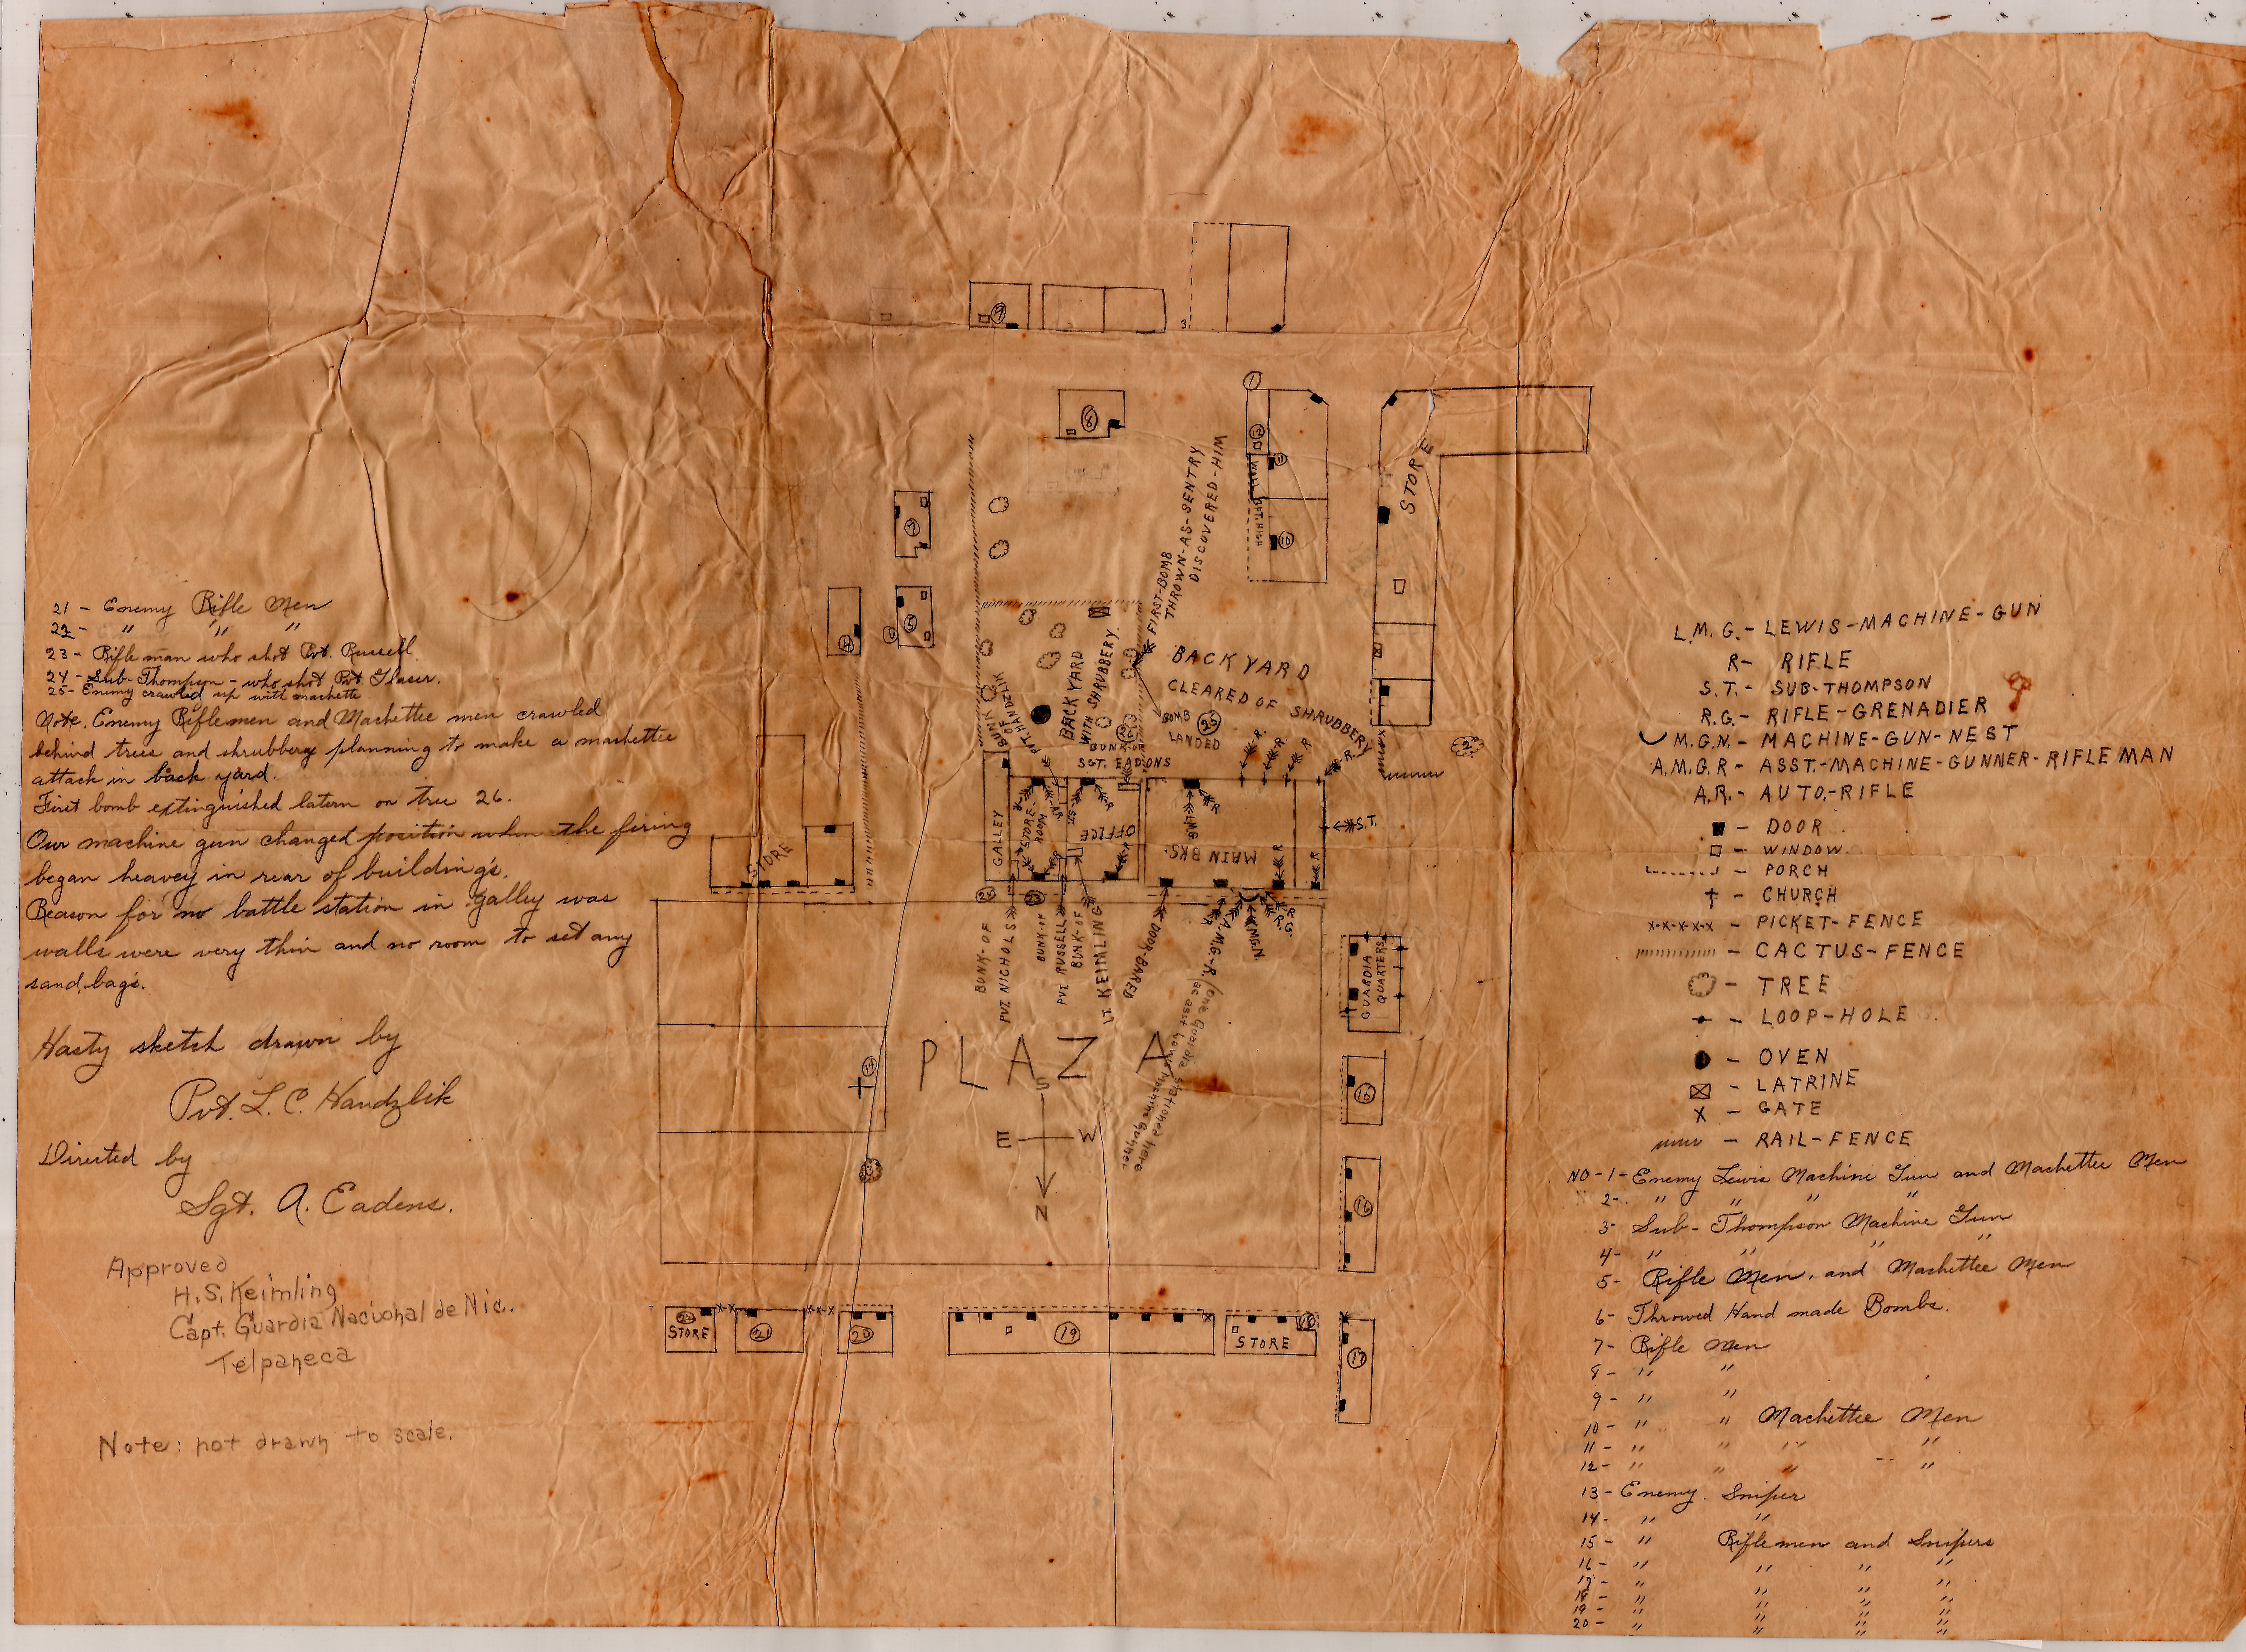 21 - Enemy Rifle Men
22 - " " "
23 - Rifle man who shot Pvt. Russell.
24 - Sub-Thompson - who shot Pvt Glaser.
25 - Enemy crawled up with machette
Note. Enemy Riflemen and Machettee men crawled
behind trees and shrubbery planning to make a machettee
attack in back yard.
First bomb extinguished latern on tree 26.
Our machine gun changed position when the firing
began heavey in rear of building's.
Reason for no battle station in galley was
walls were very thin and no room to set any
sand, bag's.
Hasty sketch drawn by
Pvt. L. C. Handzlik
Directed by
Sgt. A. Eadens.
Approved
H. S. Keimling
Capt. Guardia Nacional de Nic.
Telpaneca
Note: not drawn to scale.
9
3
8
1
12
WALL 8FT. HIGH
11
10
STORE
7
4
6
5
FIRST-BOMB
THROWN-AS-SENTRY
DISCOVERED-HIM
BACK YARD
WITH SHRUBBERY
BACK YARD
CLEARED OF SHRUBBERY
BOMB
LANDED
25
26
2
BUNK OF
PVT. HANDZLIK
BUNK-OF
SGT. EADONS
R. R. R R.
GALLEY
STORE-
ROOM
R
R
R
ST.
OFFICE
R
LMG
R
MAIN BKS.
R
R
S.T.
STORE
24
23
BUNK-OF
PVT. NICHOLS
BUNK-OF
PVT. RUSSELL
BUNK-OF
LT. KEIMLING
DOOR-BARED
A.M.G-R.
M.G.N.
R.
R.G.
(One Guardia stationed here
as asst Lewis Machine gunner
GUARDIA
QUARTERS
PLAZA
14
13
S
E W
N
15
16
17
22
STORE
21
20
19
STORE
18
L.M.G. - LEWIS-MACHINE-GUN
R- RIFLE
S.T. - SUB-THOMPSON
R.G. - RIFLE-GRENADIER
M.G.N. - MACHINE-GUN-NEST
A.M.G.R - ASST.-MACHINE-GUNNER-RIFLEMAN
A.R. - AUTO.-RIFLE
- DOOR
- WINDOW.
- PORCH
- CHURCH
x-x-x-x-x - PICKET-FENCE
- CACTUS-FENCE
- TREE
- LOOP-HOLE
- OVEN
- LATRINE
X - GATE
- RAIL-FENCE
NO-1- Enemy Lewis Machine Gun and Machettee Men
2- " " " "
3- Sub-Thompson Machine Gun
4- " " " "
5- Rifle Men. and Machettee Men
6- Throwed Hand made Bombs.
7- Rifle Men
8- " "
9- " "
10- " " Machettee Men
11- " " " "
12- " " " -- "
13- Enemy. Sniper
14- " "
15- " Riflemen and Snipers
16- " " " "
17- " " " "
18- " " " "
19- " " " "
20- " " " "